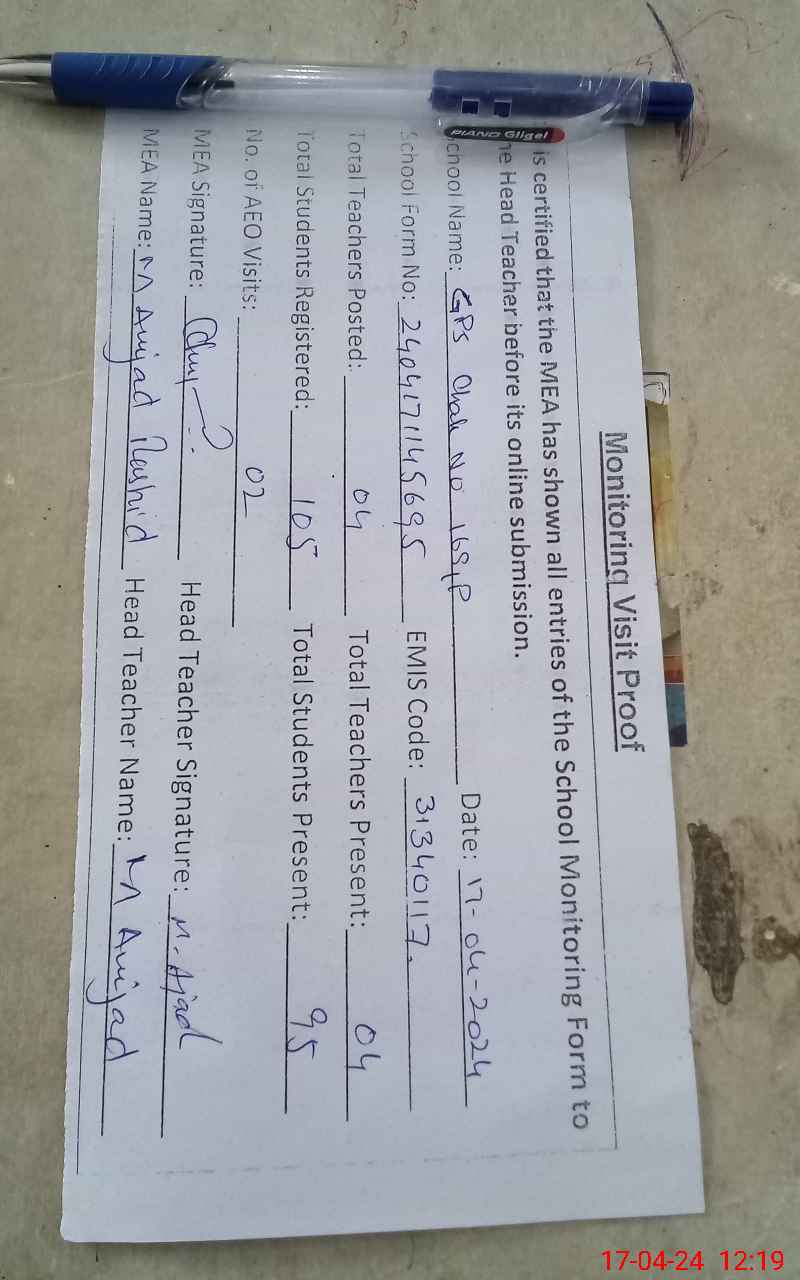 Monitoring Visit Proof
is certified that the MEA has shown all entries of the School Monitoring Form to
he Head Teacher before its online submission.
chool Name: GPS Chak No 168/P Date: 17-04-2024
School Form No: 2404171145695 EMIS Code: 31340117.
Total Teachers Posted: 04 Total Teachers Present: 04
Total Students Registered: 105 Total Students Present: 95
No. of AEO Visits: 02
MEA Signature: Head Teacher Signature: M. Ajad
MEA Name: M Amjad Rashid Head Teacher Name: M Amjad
PIANO Gligel
17-04-24 12:19